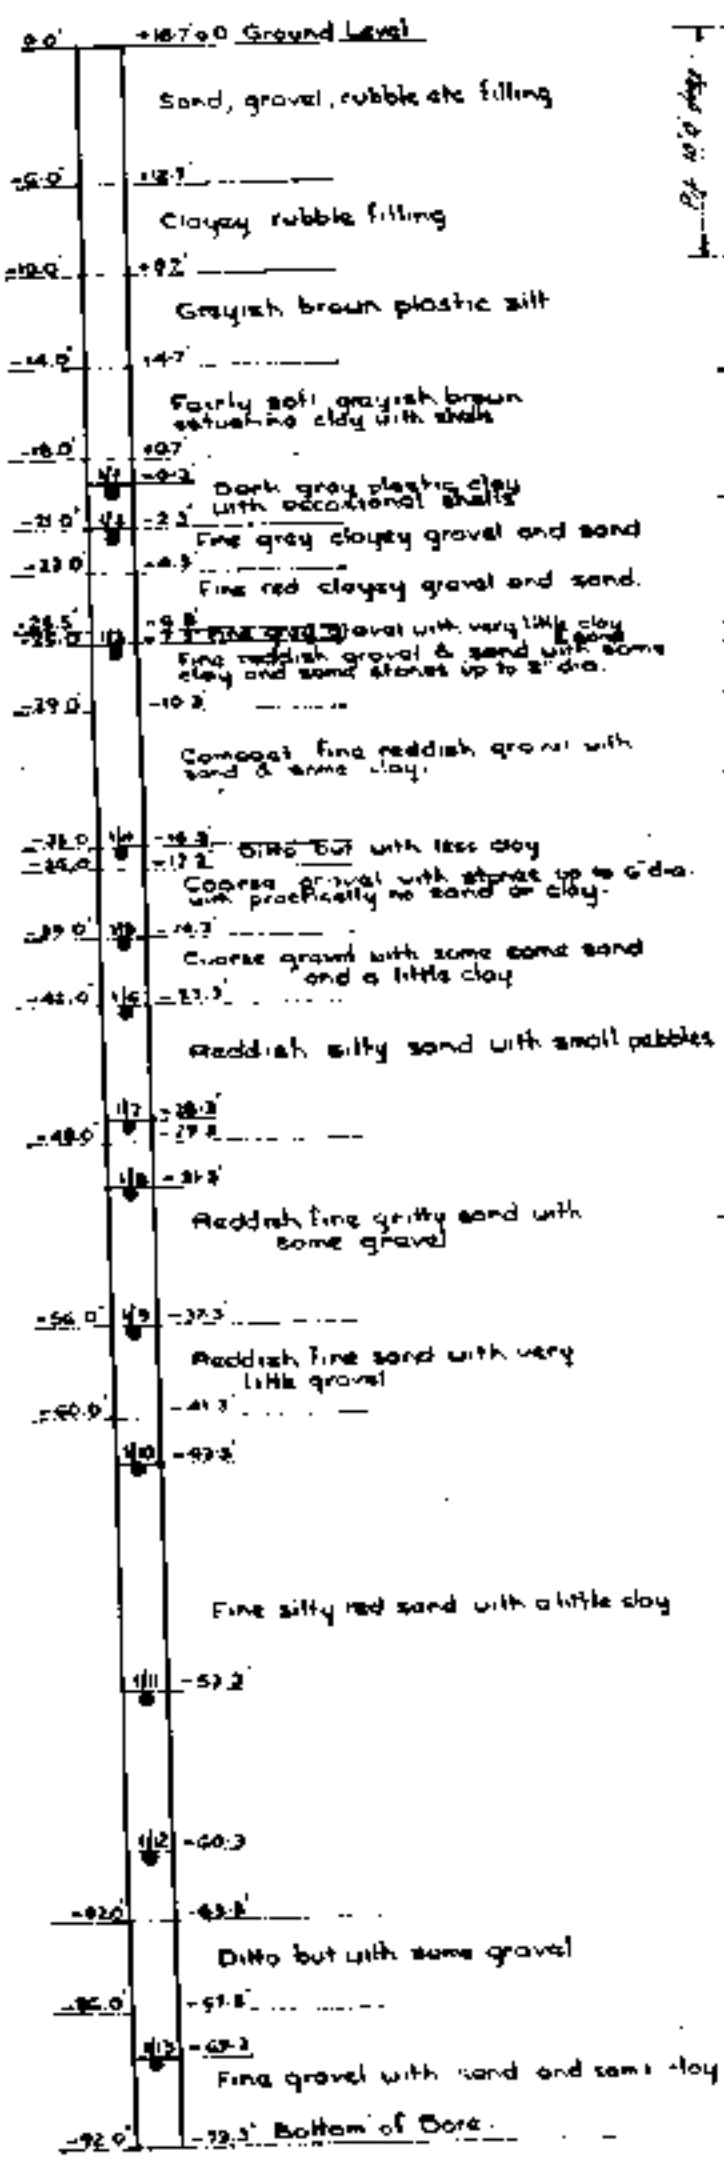 0.0' +18.7' O.D Ground Level
Sand, gravel, rubble etc filling
Pit 10'0" deep
-6.0' +12.7'
Clayey rubble filling
-10.0' +8.7'
Greyish brown plastic silt
-14.0' +4.7'
Fairly soft greyish brown
estuarine clay with shells
-18.0' +0.7'
1/1
Dark grey plastic clay
with occasional shells
-21.0' 1/2 -2.3'
Fine grey clayey gravel and sand
-23.0' -4.3'
Fine red clayey gravel and sand.
Fine grey gravel with very little clay
& sand
1/3
Fine reddish gravel & sand with some
clay and some stones up to 2" dia.
-29.0' -10.3'
Compact fine reddish gravel with
sand & some clay.
-35.0 1/4 -16.3'
Ditto but with less clay
-36.0' -17.3'
Coarse gravel with stones up to 6" dia.
with practically no sand or clay.
-39.0' 1/5
Coarse gravel with some some sand
and a little clay
-42.0' 1/6 -23.3'
Reddish silty sand with small pebbles
1/7 -28.3'
-48.0' -29.3
1/8
Reddish fine gritty sand with
some gravel
-56.0' 1/9 -37.3'
Reddish fine sand with very
little gravel
-60.0' -41.3'
1/10
Fine silty red sand with a little clay
1/11
1/12 -60.3
-82.0'
Ditto but with some gravel
-86.0'
1/13
Fine gravel with sand and some clay
-92.0' -73.3' Bottom of Bore.